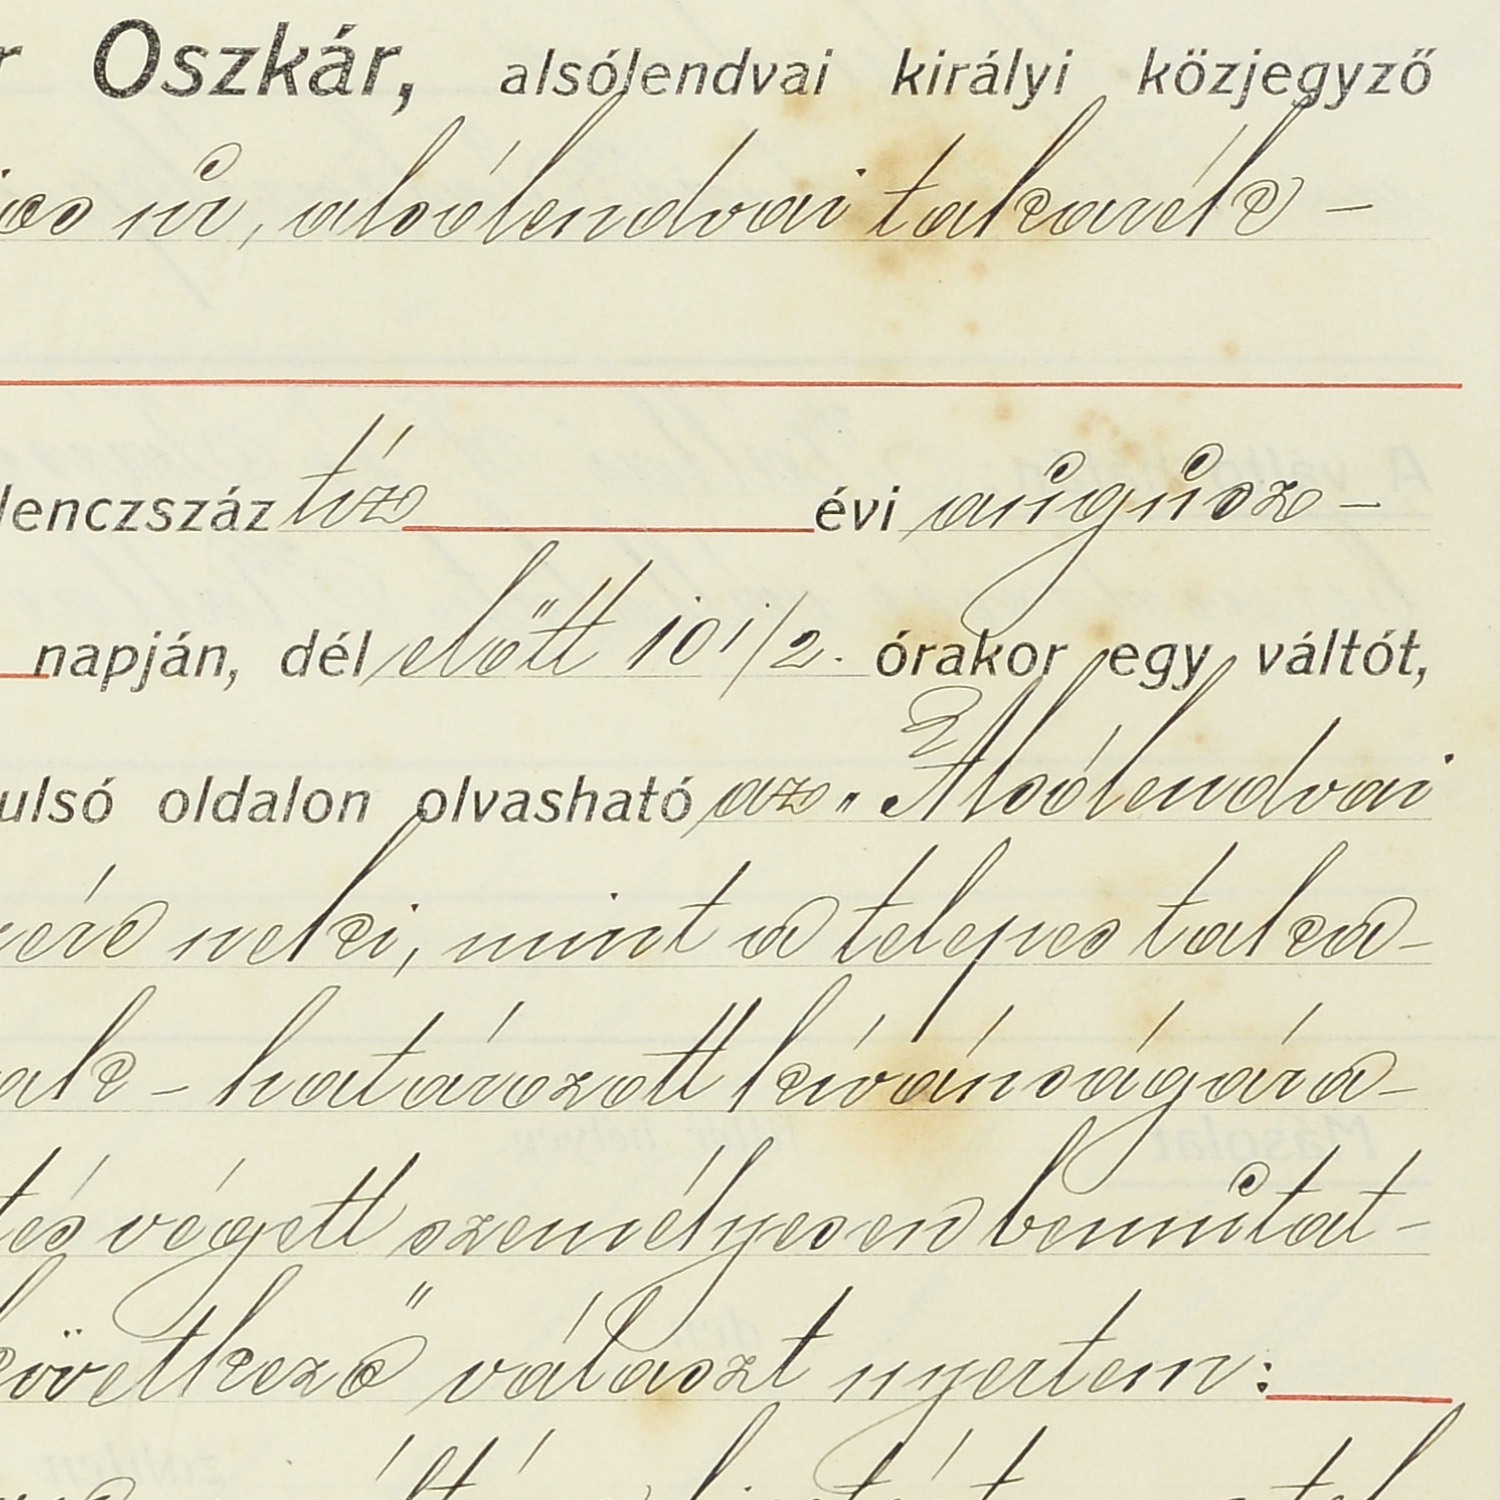 r Oszkár, alsólendvai királyi közjegyző
úr, alsólendvai takarék -
lenczszáz tíz évi augusz -
napján, dél előtt 10 1/2. órakor egy váltót,
ulsó oldalon olvasható az "Alsólendvai
neki, mint a telepes taka-
ak - határozott kívánságára-
tés végett személyesen bemutat-
következő választ nyertem: